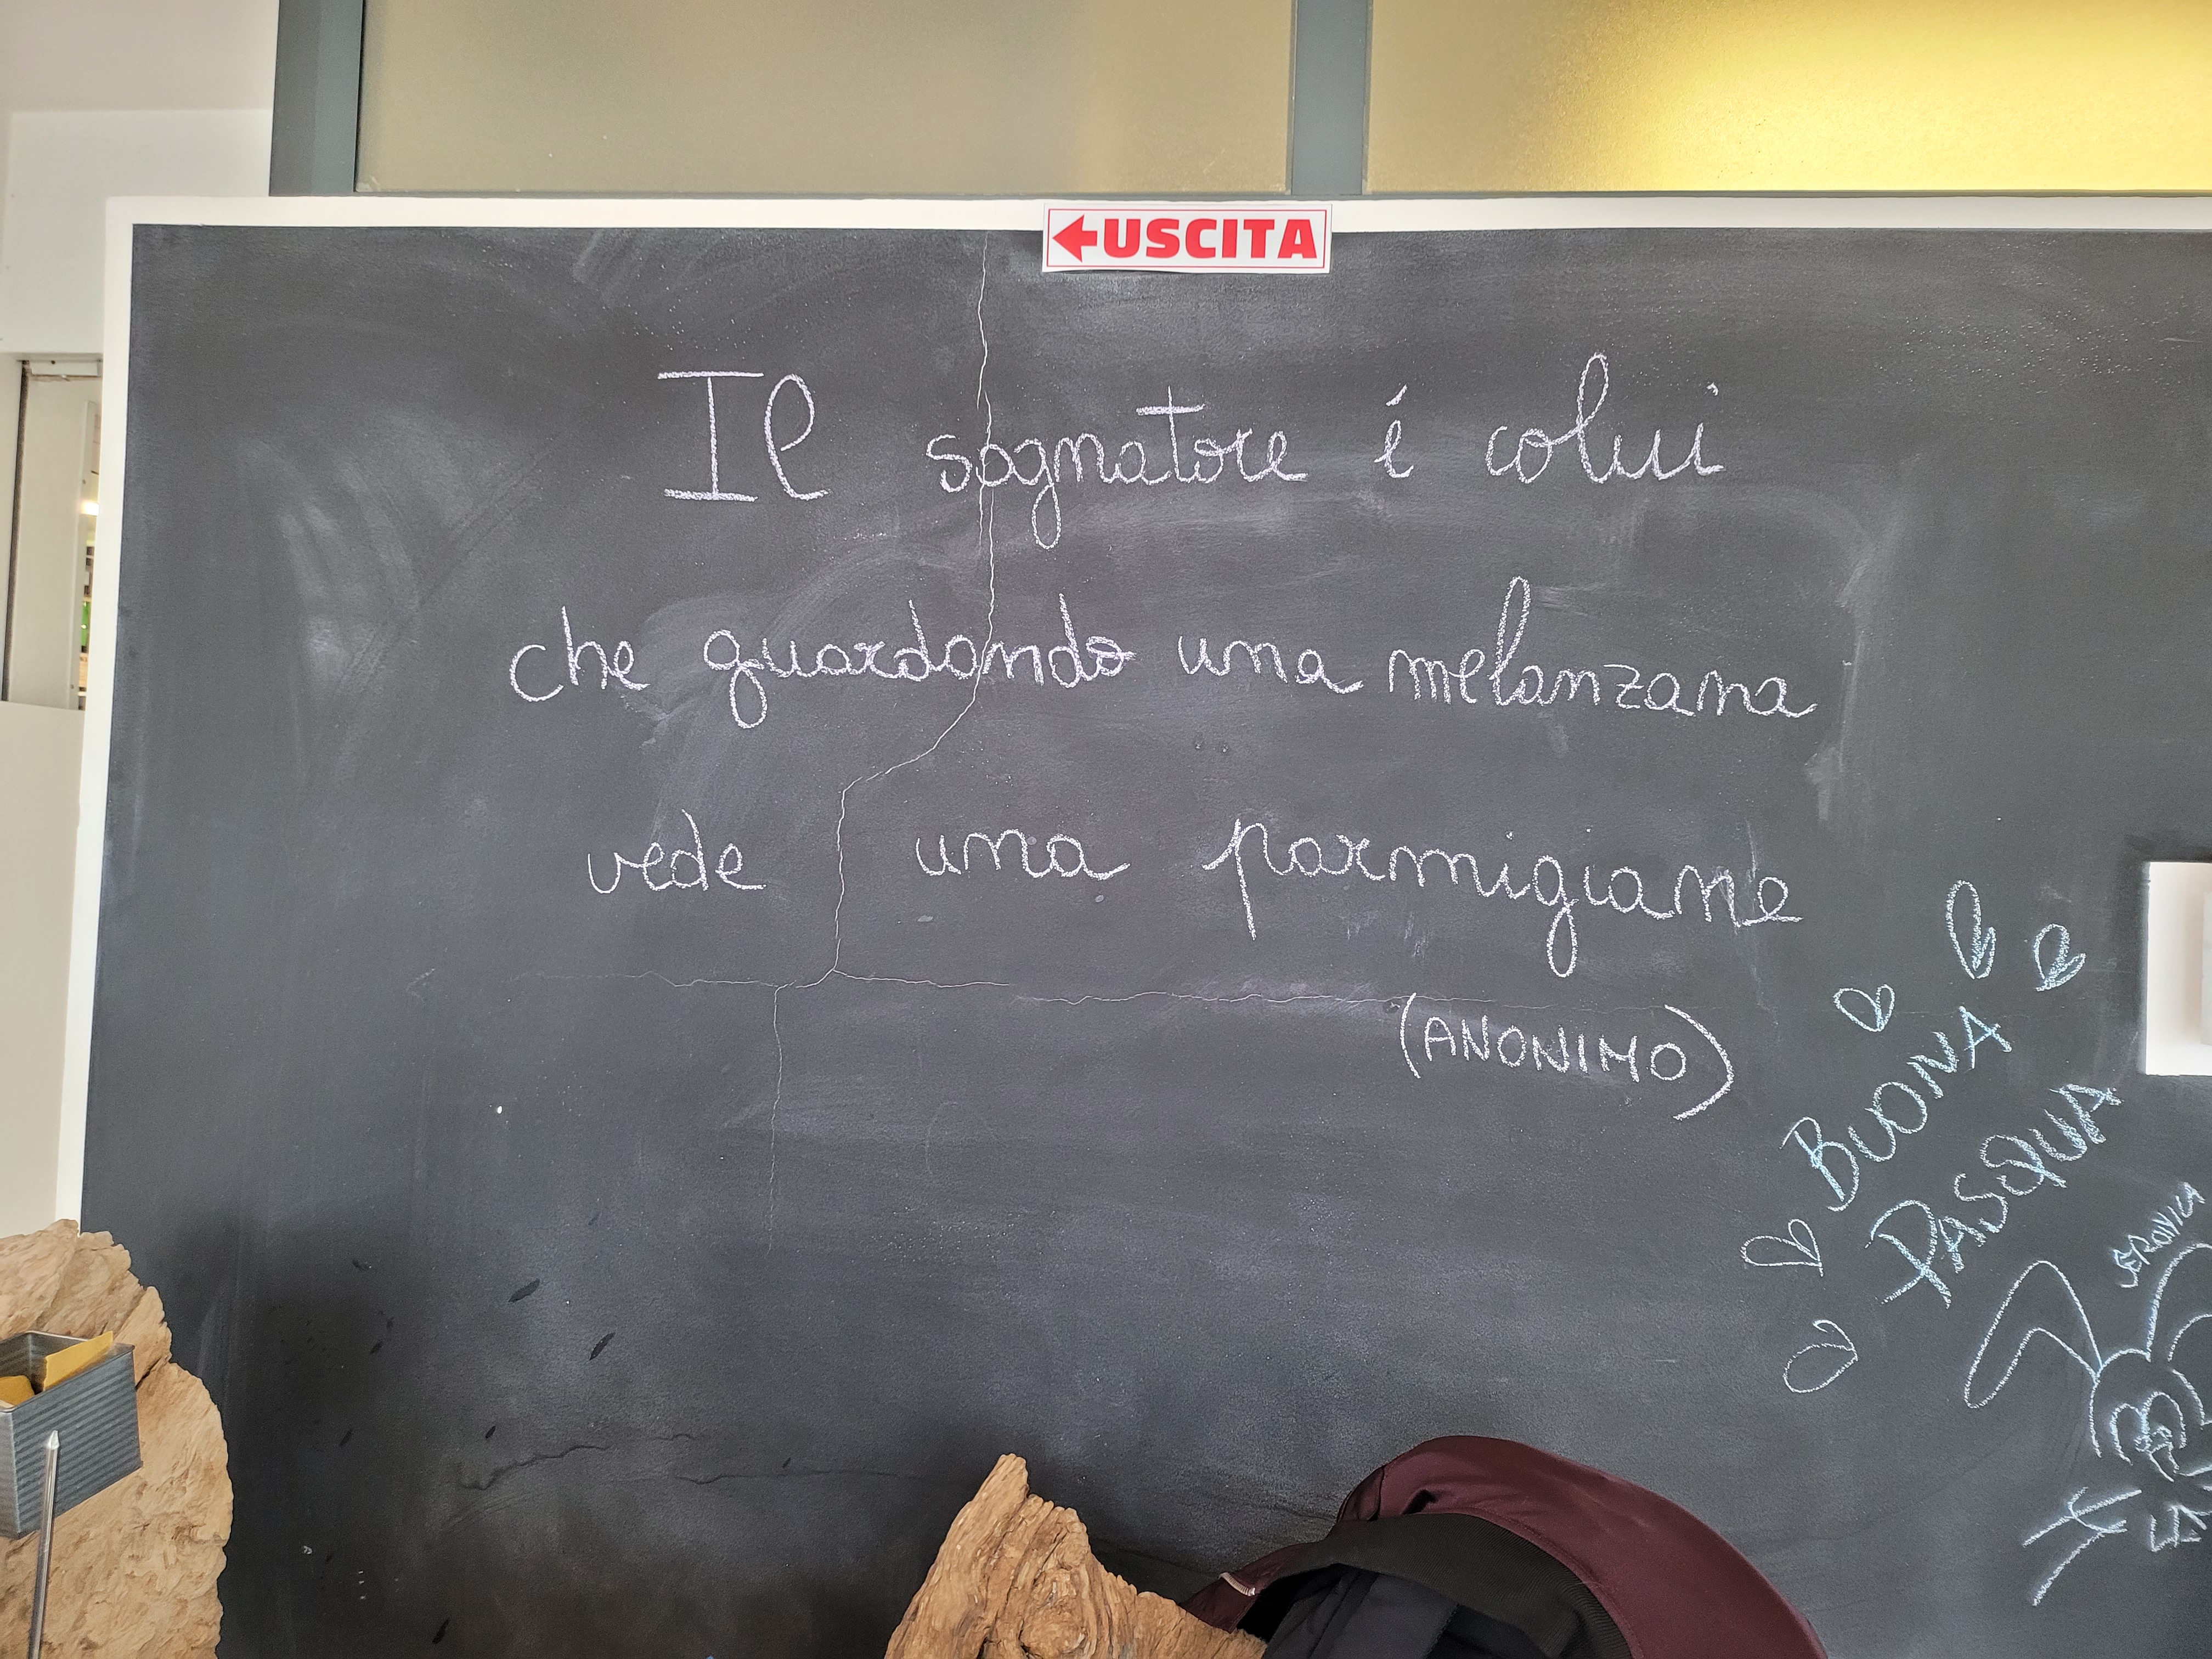 ←USCITA
Il sognatore é colui
che guardando una melanzana
vede una parmigiane
(ANONIMO)
BUONA
PASQUA
VERONICA